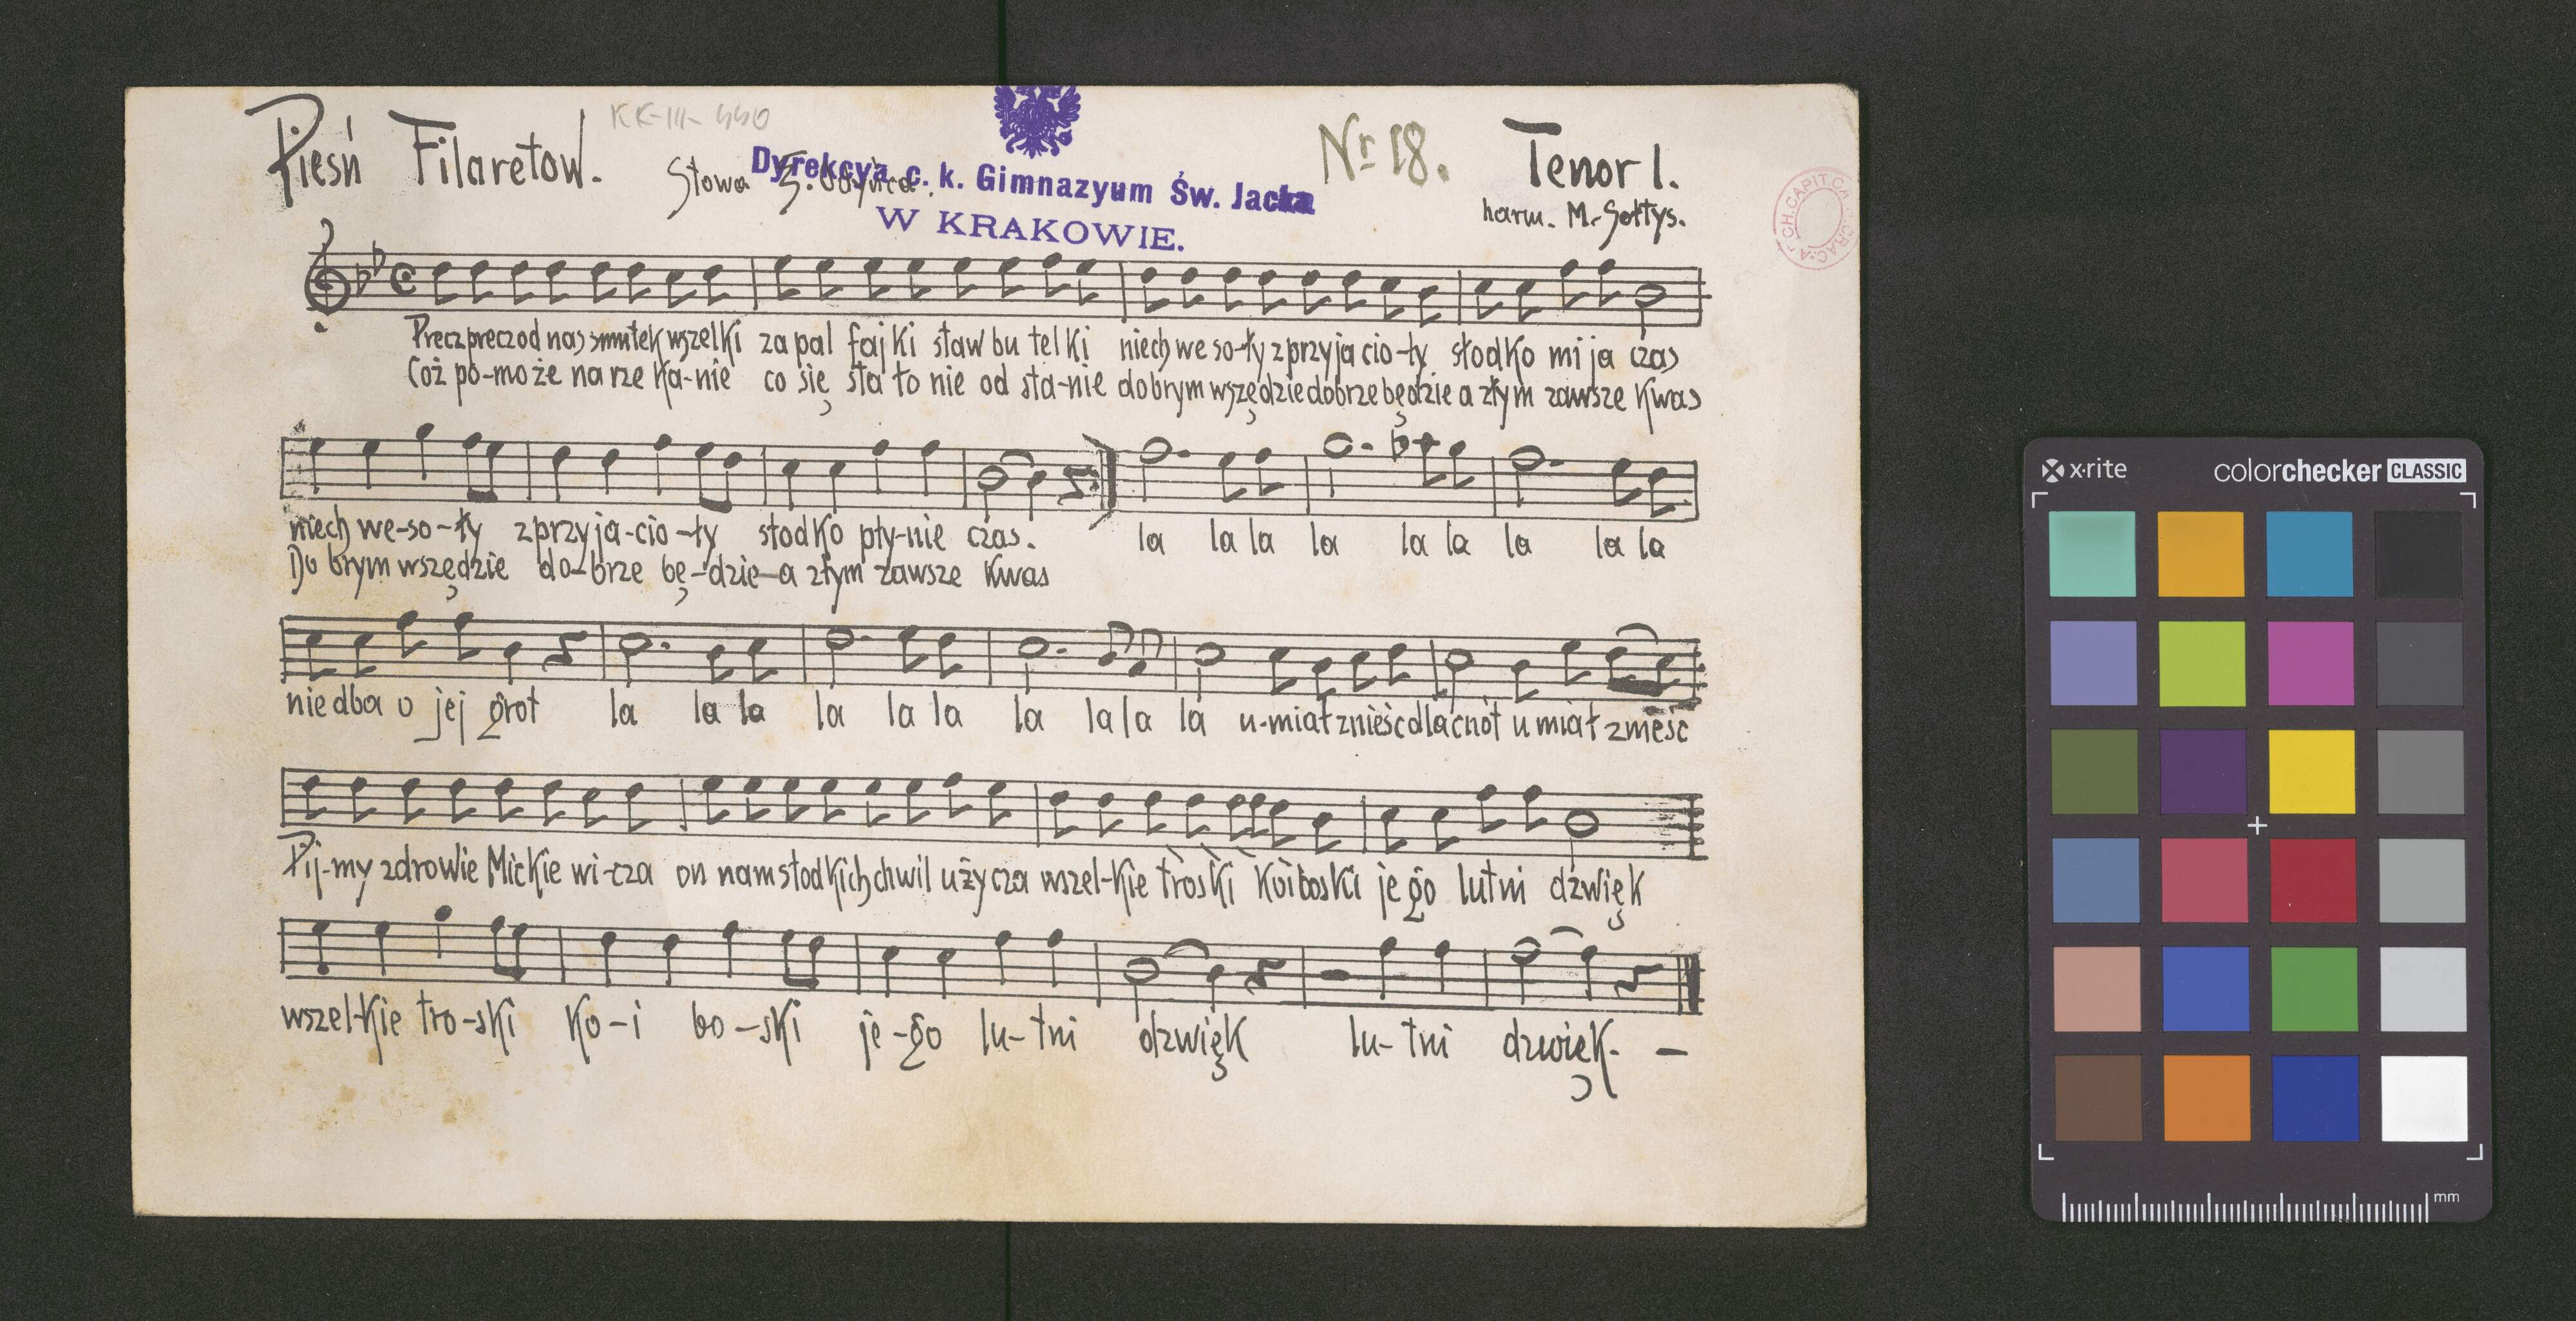 Pieśń Filaretow.
KK-III-440
Dyrekcya c. k. Gimnazyum Św. Jacka
W KRAKOWIE.
Słowa
Nr 18.
Tenor I.
harm. M. Sołtys.
Precz precz od nas smutek wszelki za pal fajki staw bu tel ki niech we so-ły z przy ja cio-ły słodko mi ja czas
Coż po-może na rze ka-nie co się sta ło nie od sta-nie dobrym wszędzie dobrze będzie a złym zawsze kwas
niech we-so-ły z przy ja-cio-ły słodko pły-nie czas. la la la la la la la la la
Do brym wszędzie do-brze bę-dzie-a złym zawsze kwas
nie dba o jej grot la la la la la la la la la la u-miał znieść dla cnót u miał znieść
Pij-my zdrowie Mickie wi-cza on nam słodkich chwil uży cza wszel-kie troski koi boski je go lutni dźwięk
wszel-kie tro-ski ko-i bo-ski je-go lu-tni dzwięk lu-tni dzwięk- -
x-rite
colorchecker CLASSIC
mm